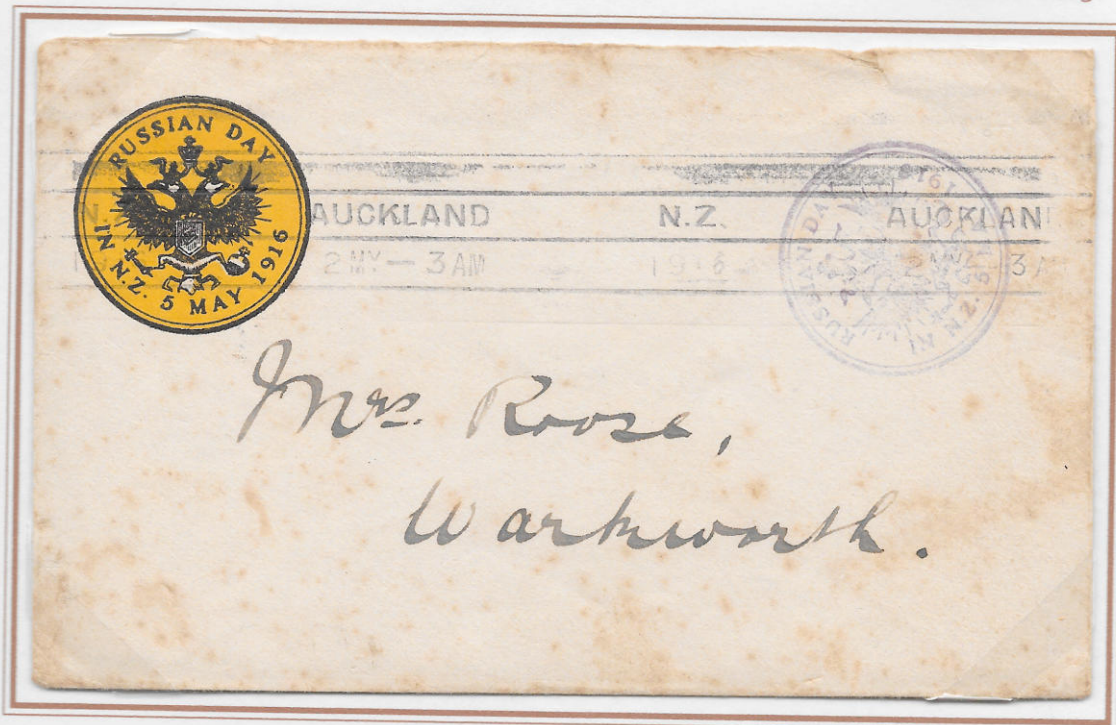 RUSSIAN DAY
IN N.Z. 5 MAY 1916
AUCKLAND N.Z. AUCKLAN
2 MY — 3 AM 1916 3 A
RUSSIAN DAY
IN N.Z. 5
Mrs. Roose,
Warkworth.